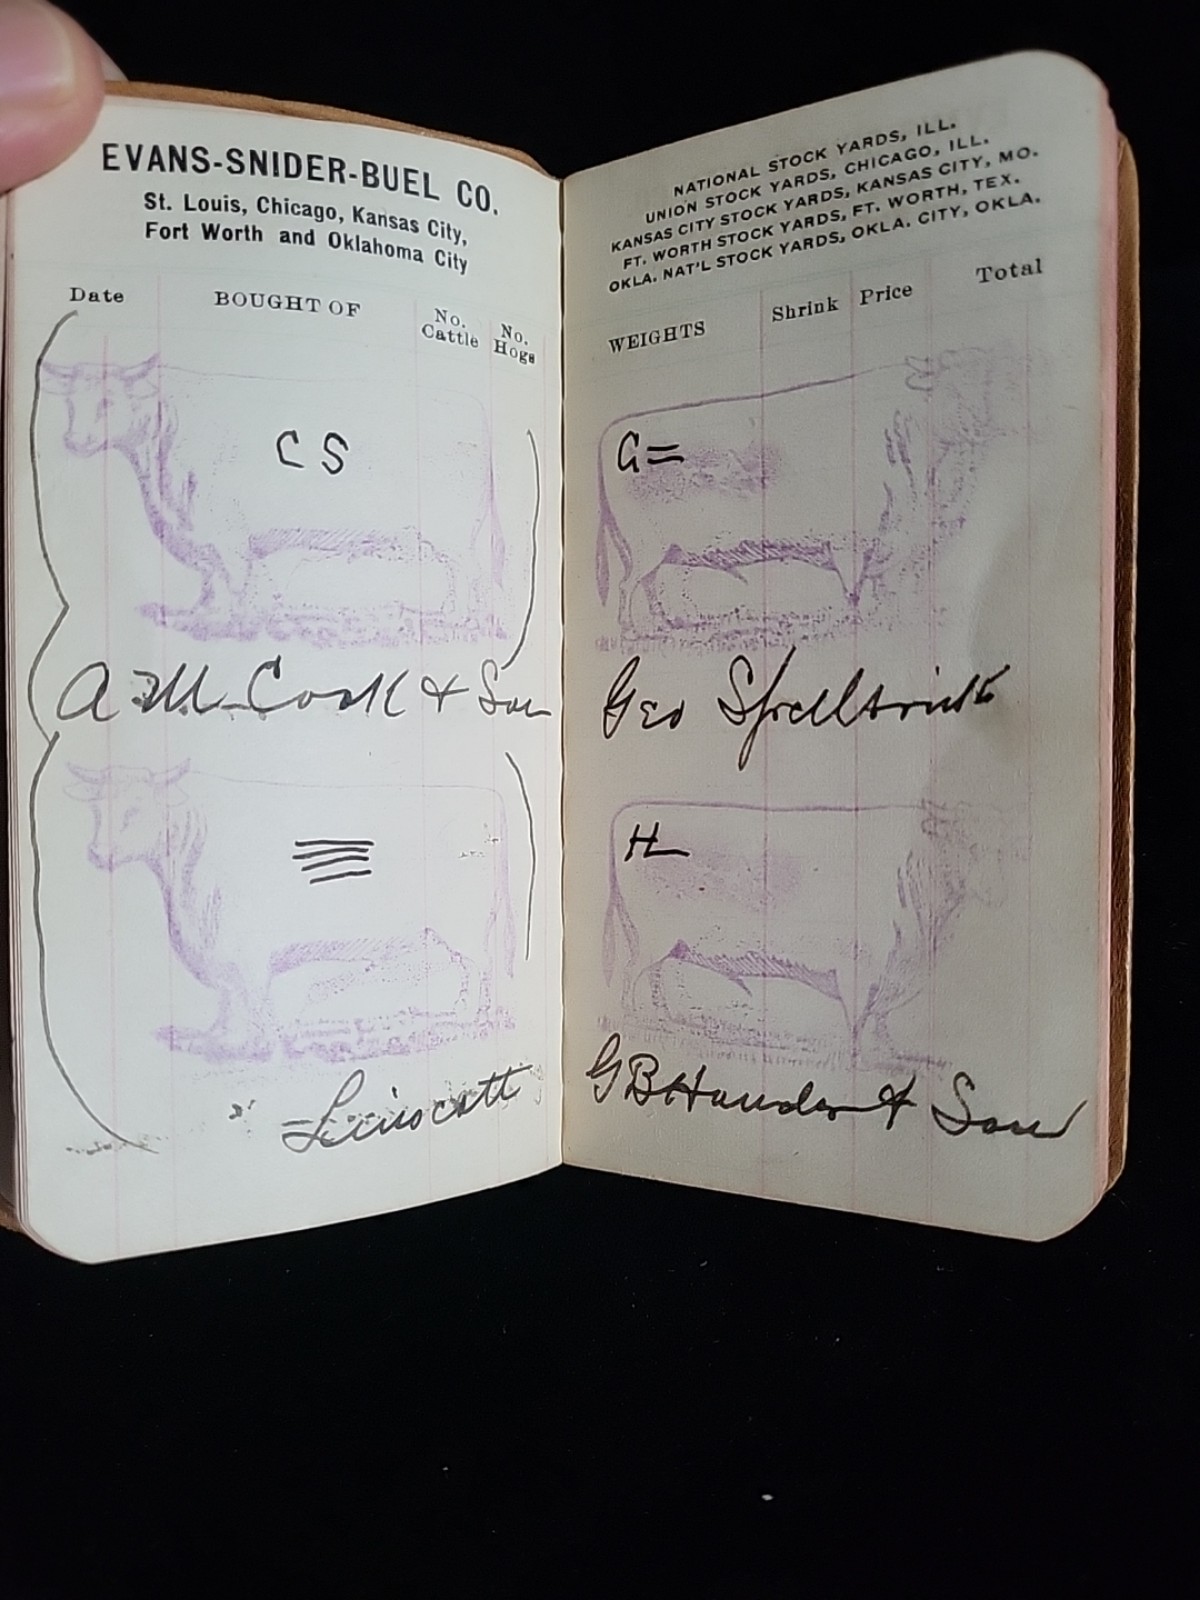 EVANS-SNIDER-BUEL CO.
St. Louis, Chicago, Kansas City,
Fort Worth and Oklahoma City
Date BOUGHT OF No. Cattle No. Hogs
C S
A M Cook & Son
Linscott
NATIONAL STOCK YARDS, ILL.
UNION STOCK YARDS, CHICAGO, ILL.
KANSAS CITY STOCK YARDS, KANSAS CITY, MO.
FT. WORTH STOCK YARDS, FT. WORTH, TEX.
OKLA. NAT'L STOCK YARDS, OKLA. CITY, OKLA.
WEIGHTS Shrink Price Total
G=
Geo
H
G B & Son